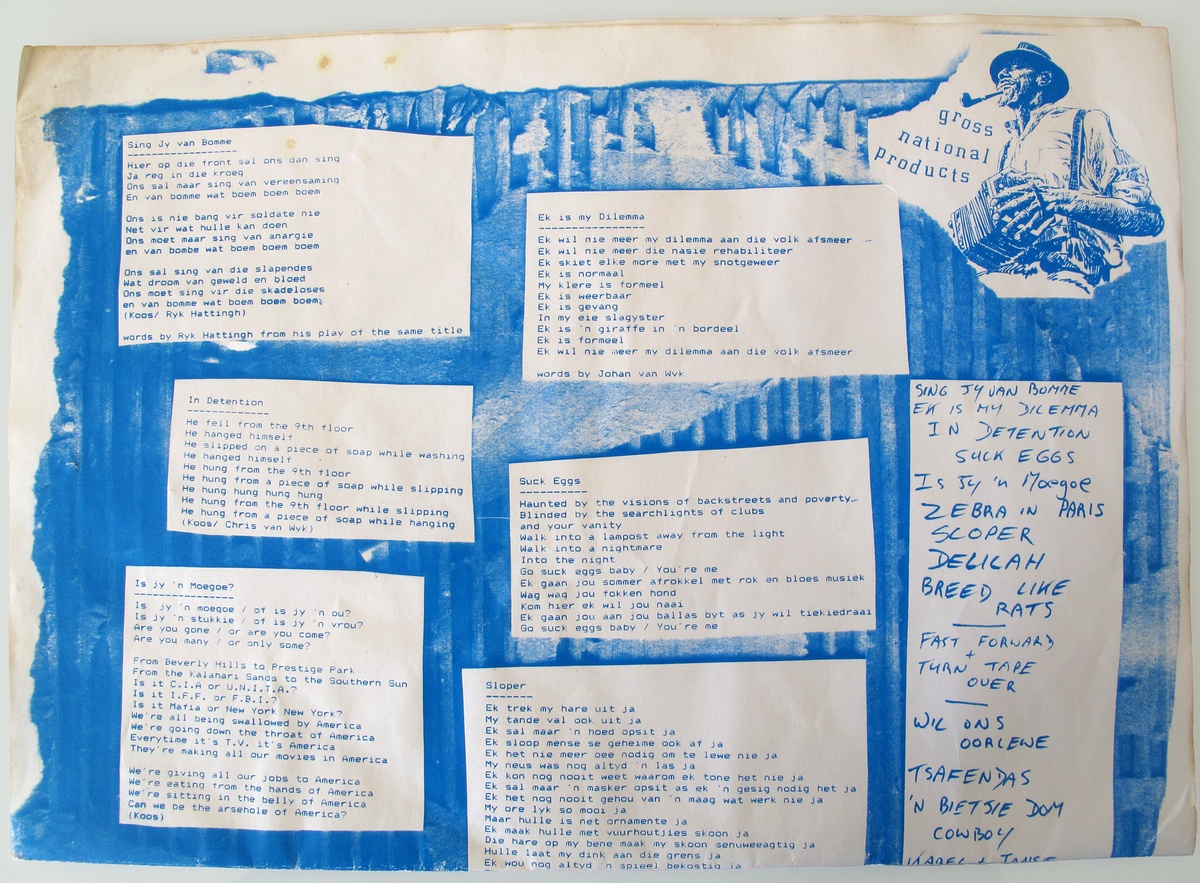 gross
national
products
Sing Jy van Bomme
-------------------
Hier op die front sal ons dan sing
Ja reg in die kroeg
Ons sal maar sing van vereensaming
En van bomme wat boem boem boem
Ons is nie bang vir soldate nie
Net vir wat hulle kan doen
Ons moet maar sing van anargie
en van bombe wat boem boem boem
Ons sal sing van die slapendes
Wat droom van geweld en bloed
Ons moet sing vir die skadeloses
en van bomme wat boem boem boem;
(Koos/ Ryk Hattingh)
words by Ryk Hattingh from his play of the same title
Ek is my Dilemma
----------------
Ek wil nie meer my dilemma aan die volk afsmeer
Ek wil nie meer die nasie rehabiliteer
Ek skiet elke more met my snotgeweer
Ek is normaal
My klere is formeel
Ek is weerbaar
Ek is gevang
In my eie slagyster
Ek is 'n giraffe in 'n bordeel
Ek is formeel
Ek wil nie meer my dilemma aan die volk afsmeer
words by Johan van Wyk
In Detention
-------------
He fell from the 9th floor
He hanged himself
He slipped on a piece of soap while washing
He hanged himself
He hung from the 9th floor
He hung from a piece of soap while slipping
He hung hung hung hung
He hung from the 9th floor while slipping
He hung from a piece of soap while hanging
(Koos/ Chris van Wyk)
Suck Eggs
----------
Haunted by the visions of backstreets and poverty
Blinded by the searchlights of clubs
and your vanity
Walk into a lampost away from the light
Walk into a nightmare
Into the night
Go suck eggs baby / You're me
Ek gaan jou sommer afrokkel met rok en bloes musiek
Wag wag jou fokken hond
Kom hier ek wil jou naai
Ek gaan jou aan jou ballas byt as jy wil tiekiedraai
Go suck eggs baby / You're me
Is jy 'n Moegoe?
------------------
Is jy 'n moegoe / of is jy 'n ou?
Is jy 'n stukkie / of is jy 'n vrou?
Are you gone / or are you come?
Are you many / or only some?
From Beverly Hills to Prestige Park
From the Kalahari Sands to the Southern Sun
Is it C.I.A or U.N.I.T.A.?
Is it I.F.F. or F.B.I.?
Is it Mafia or New York New York?
We're all being swallowed by America
We're going down the throat of America
Everytime it's T.V. it's America
They're making all our movies in America
We're giving all our jobs to America
We're eating from the hands of America
We're sitting in the belly of America
Can we be the arsehole of America?
(Koos)
Sloper
-------
Ek trek my hare uit ja
My tande val ook uit ja
Ek sal maar 'n hoed opsit ja
Ek sloop mense se geheime ook af ja
Ek het nie meer oee nodig om te lewe nie ja
My neus was nog altyd 'n las ja
Ek kon nog nooit weet waarom ek tone het nie ja
Ek sal maar 'n masker opsit as ek 'n gesig nodig het ja
Ek het nog nooit gehou van 'n maag wat werk nie ja
My ore lyk so mooi ja
Maar hulle is net ornamente ja
Ek maak hulle met vuurhoutjies skoon ja
Die hare op my bene maak my skoon senuweeagtig ja
Hulle laat my dink aan die grens ja
Ek wou nog altyd 'n spieel bekostig ja
SING JY VAN BOMME
EK IS MY DILEMMA
IN DETENTION
SUCK EGGS
Is Jy 'n Moegoe
ZEBRA IN PARIS
SLOPER
DELILAH
BREED LIKE
RATS
FAST FORWARD
+
TURN TAPE
OVER
WIL ONS
OORLEWE
TSAFENDAS
'N BIETSIE DOM
COWBOY